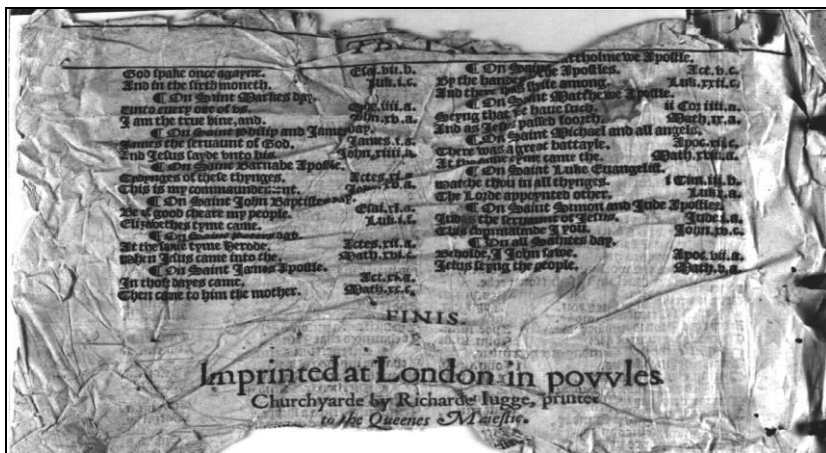 God spake once agayne. Esai.vii.b.
And in the sixth moneth. Luk.i.c.
¶ On Saint Markes day.
Unto euery one of vs. iiii.a.
I am the true vine, and. John.xv.a.
¶ On Saint Philip and James day.
James the seruaunt of God. James.i.a.
And Jesus sayde vnto his. John.xiiii.a.
¶ On Saint Barnabe Apostle.
Tydynges of these thynges. Actes.xi.
This is my John.xv.a.
¶ On Saint John Baptistes day.
Be of good cheare my people. Esai.xl.a.
Elizabethes tyme came. Luk.i.f.
¶ On Saint day.
At the same tyme Herode. Actes.xii.a.
When Jesus came into the. Math.xvi.c.
¶ On Saint James Apostle.
In those dayes came. Act.xi.
Then came to him the mother. Math.xx.c.
tholme we Apostle.
¶ On Saint
By the handes the Apostles. Act.v.c.
And there was strife among. Luk.xxii.c.
¶ On Saint Matthewe Apostle.
Seyng that we haue such. ii Cor iiii.a.
And as Jesus passed foorth. Math.ix.a.
¶ On Saint Michael and all angels.
There was a great battayle. Apoc.xii.c.
At the same tyme came the. Math.xviii.a.
¶ On Saint Luke Euangelist.
Watche thou in all thynges. i Tim.iii.b.
The Lorde appoynted other. Luk.x.a.
¶ On Saint Simon and Jude Apostles.
Judas the seruaunt of Jesus. Jude.i.a.
This commaunde I you. John.xv.c.
¶ On all Saintes day.
Beholde, I John sawe. Apoc.vii.a.
Jesus seyng the people. Math.v.a.
FINIS.
Imprinted at London in povvles
Churchyarde by Richarde Iugge, printer
to the Queenes Maiestie.